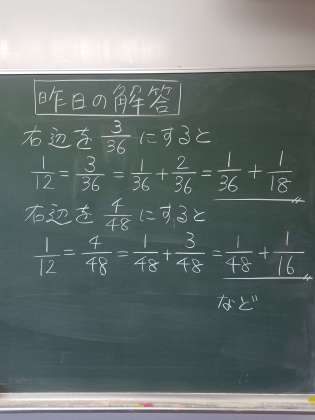 昨日の解答
右辺を 3/36 にすると
1/12 = 3/36 = 1/36 + 2/36 = 1/36 + 1/18
右辺を 4/48 にすると
1/12 = 4/48 = 1/48 + 3/48 = 1/48 + 1/16
など